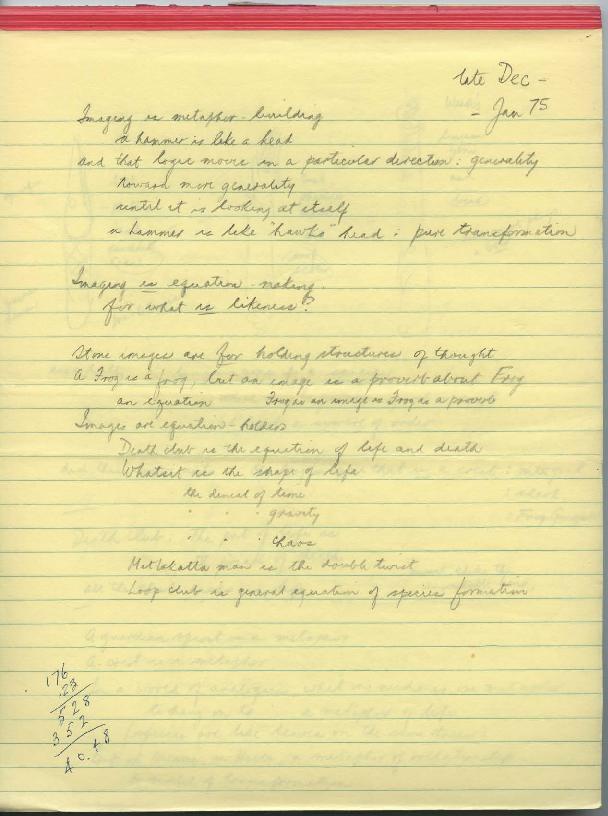 late Dec -
- Jan 75
Imaging is metaphor-building
a hammer is like a head
and that logic moves in a particular direction: generality
toward more generality
until it is looking at itself
a hammer is like "hawks" head: pure transformation
Imaging is equation-making.
for what is likeness?
Stone images are for holding structures of thought
A Frog is a frog, but an image is a proverb about Frog
an equation Frog as an image is Frog as a proverb
Images are equation-holders
Death club is the equation of life and death
Whatsit is the shape of life
the denial of time
" " " gravity
" " " chaos
Metlakatla man is the double twist
Loop club is general equation of species formation
176
.23
528
352
40.48